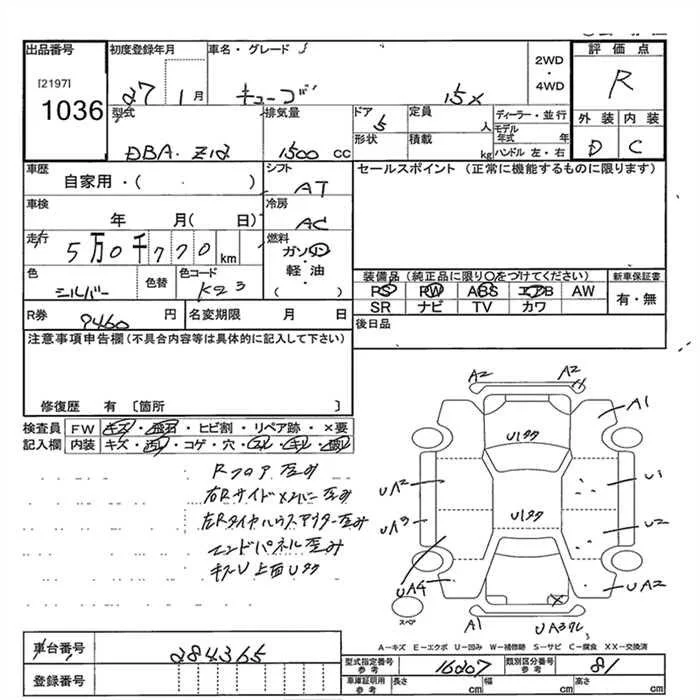 出品番号
[2197]
1036
初度登録年月
27 1月
車名・グレード
キューブ 15X
2WD
・
4WD
評価点
R
外装 内装
D C
型式
DBA・Z12
排気量
1500 cc
ドア
5
形状
定員
人
積載
kg
ディーラー・並行
モデル年式 年
ハンドル 左・右
車歴
自家用・( )
シフト
AT
セールスポイント (正常に機能するものに限ります)
車検
年 月( 日)
冷房
AC
走行
5万0千770km
燃料
ガソリン・軽油・( )
色
シルバー
色替
色コード
K23
装備品(純正品に限り○をつけてください)
PS PW ABS エアB AW
SR ナビ TV カワ
新車保証書
有・無
R券
9460円
名変期限 月 日
後日品
注意事項申告欄(不具合内容等は具体的に記入して下さい)
修復歴 有 〔箇所 〕
検査員記入欄
FW キズ・飛石・ヒビ割・リペア跡・×要
内装 キズ・汚レ・コゲ・穴・スレ・キレ・破レ
Rフロア歪み
右Rサイドメンバー歪み
左RタイヤハウスアウターF歪み
エンドパネル歪み
A2 A2
A1
U1クク
UA2
U1
UA3
U2
U1ククク
UA4
UA2
X
スペア
A1
A―キズ E―エクボ U―凹み W―補修跡 S―サビ C―腐食 XX―交換済
車台番号
284365
登録番号
型式指定番号
参考
16207
類別区分番号
参考
81
車庫証明用
参考
長さ cm
幅 cm
高さ cm